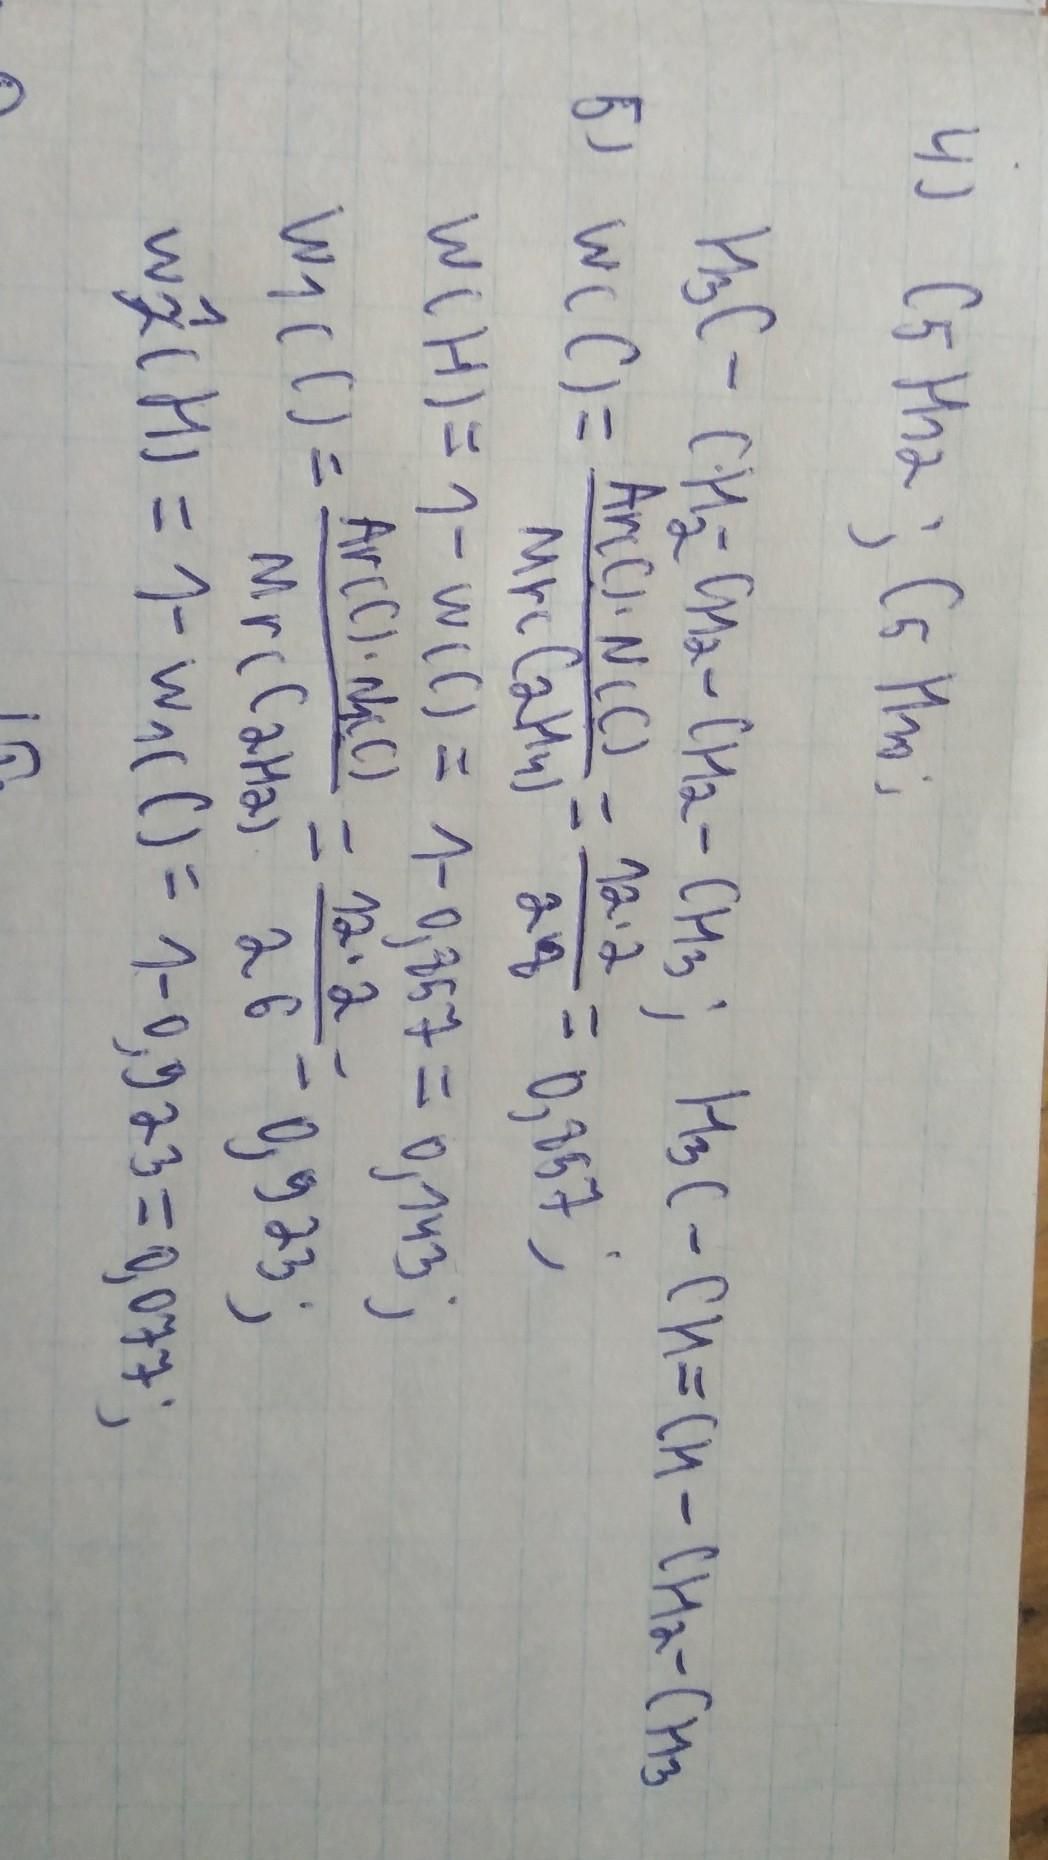 4) C5H12; C5H10;
H3C - CH2 - CH2 - CH2 - CH3; H3C - CH = CH - CH2 - CH3
5) w(C) = Ar(C)·N(C) / Mr(C2H4) = 12·2 / 28 = 0,857;
w(H) = 1 - w(C) = 1 - 0,857 = 0,143;
w1(C) = Ar(C)·N(C) / Mr(C2H2) = 12·2 / 26 = 0,923;
w1(H) = 1 - w1(C) = 1 - 0,923 = 0,077;